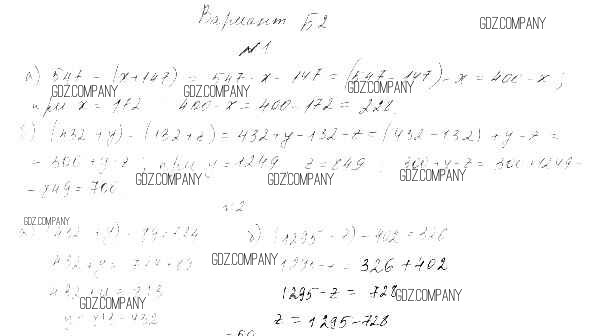 Вариант Б2
GDZ.COMPANY
№1
а) 547 - (x+147) = 547 - x - 147 = (547 - 147) - x = 400 - x ;
GDZ.COMPANY GDZ.COMPANY GDZ.COMPANY
при x = 172 400 - x = 400 - 172 = 228.
б) (432 + y) - (132 + z) = 432 + y - 132 - z = (432 - 132) + y - z =
= 300 + y - z ; при y = 1249 z = 849 ; 300 + y - z = 300 + 1249 -
GDZ.COMPANY GDZ.COMPANY GDZ.COMPANY
- 849 = 700
№2
GDZ.COMPANY
б) (1295 - z) - 402 = 326
1295 - z = 326 + 402
GDZ.COMPANY
1295 - z = 728
GDZ.COMPANY GDZ.COMPANY
z = 1295 - 728